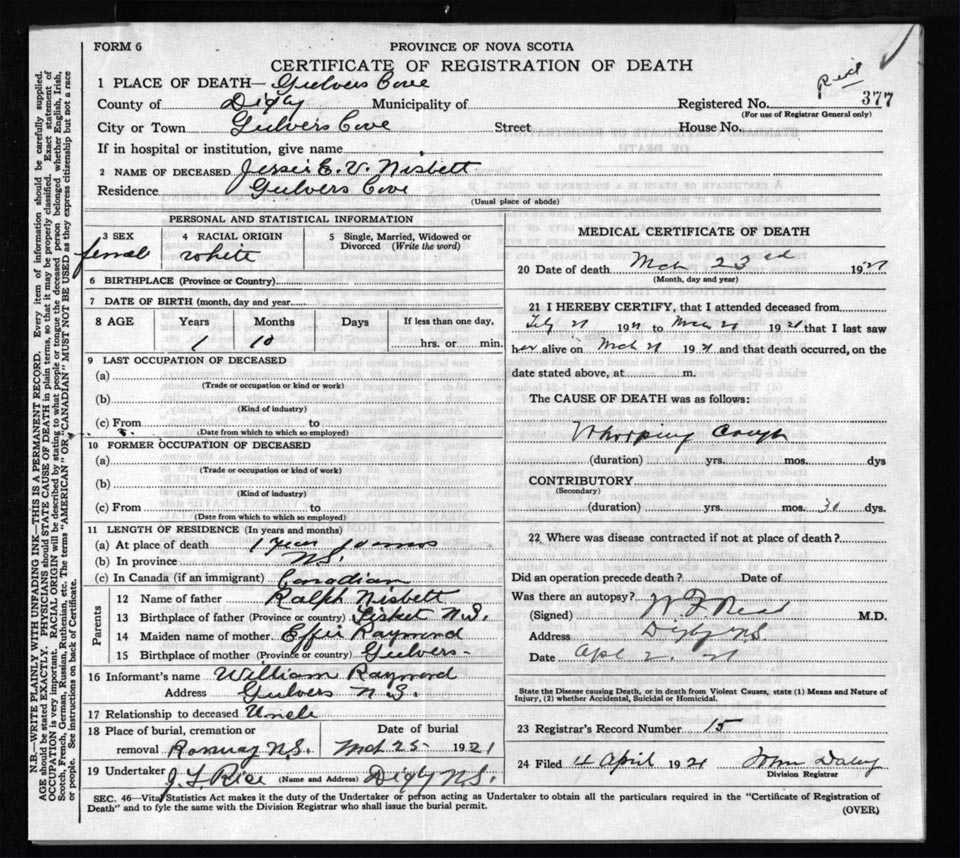 FORM 6
PROVINCE OF NOVA SCOTIA
CERTIFICATE OF REGISTRATION OF DEATH
1 PLACE OF DEATH— Gulvers Cove
County of Digby Municipality of Registered No. 377
(For use of Registrar General only)
City or Town Gulvers Cove Street House No.
If in hospital or institution, give name
2 NAME OF DECEASED Jessie E. V. Nisbett
Residence Gulvers Cove
(Usual place of abode)
PERSONAL AND STATISTICAL INFORMATION
3 SEX 4 RACIAL ORIGIN 5 Single, Married, Widowed or
Divorced (Write the word)
femal white
6 BIRTHPLACE (Province or Country)
7 DATE OF BIRTH (month, day and year)
8 AGE Years Months Days If less than one day,
1 10 hrs. or min.
9 LAST OCCUPATION OF DECEASED
(a)
(Trade or occupation or kind or work)
(b)
(Kind of industry)
(c) From to
(Date from which to which so employed)
10 FORMER OCCUPATION OF DECEASED
(a)
(Trade or occupation or kind of work)
(b)
(Kind of industry)
(c) From to
(Date from which to which so employed)
11 LENGTH OF RESIDENCE (In years and months)
(a) At place of death 1 year 10 mos
(b) In province N.S.
(c) In Canada (if an immigrant) Canadian
Parents
12 Name of father Ralph Nisbett
13 Birthplace of father (Province or country) N.S.
14 Maiden name of mother Effie Raymond
15 Birthplace of mother (Province or country) Gulvers
16 Informant's name William Raymond
Address Gulvers N.S.
17 Relationship to deceased Uncle
18 Place of burial, cremation or Date of burial
removal Rossway N.S. Mch 25 1921
19 Undertaker J. F. Rice (Name and Address) Digby N.S.
MEDICAL CERTIFICATE OF DEATH
20 Date of death Mch 23rd 1921
(Month, day and year)
21 I HEREBY CERTIFY, that I attended deceased from
1921 to 1921 that I last saw
her alive on Mch 21 1921 and that death occurred, on the
date stated above, at m.
The CAUSE OF DEATH was as follows:
Whooping Cough
(duration) yrs. mos. dys
CONTRIBUTORY
(Secondary)
(duration) yrs. mos. 30 dys.
22 Where was disease contracted if not at place of death?
Did an operation precede death? Date of
Was there an autopsy?
(Signed) W F Read M.D.
Address Digby NS
Date Apl 2. 21
State the Disease causing Death, or in death from Violent Causes, state (1) Means and Nature of
Injury, (2) whether Accidental, Suicidal or Homicidal.
23 Registrar's Record Number 15
24 Filed 4 April 1921 John Daley
Division Registrar
SEC. 46—Vital Statistics Act makes it the duty of the Undertaker or person acting as Undertaker to obtain all the particulars required in the "Certificate of Registration of
Death" and to fyle the same with the Division Registrar who shall issue the burial permit.
(OVER)
N.B.—WRITE PLAINLY WITH UNFADING INK—THIS IS A PERMANENT RECORD. Every item of information should be carefully supplied.
AGE should be stated EXACTLY. PHYSICIANS should STATE CAUSE OF DEATH in plain terms, so that it may be properly classified. Exact statement of
OCCUPATION is very important. RACIAL ORIGIN will be described by stating to what people or tongue the deceased person belonged whether English, Irish,
Scotch, French, German, Russian, Ruthenian, etc. The terms "AMERICAN" OR "CANADIAN" MUST NOT BE USED as they express citizenship but not a race
or people. See instructions on back of Certificate.